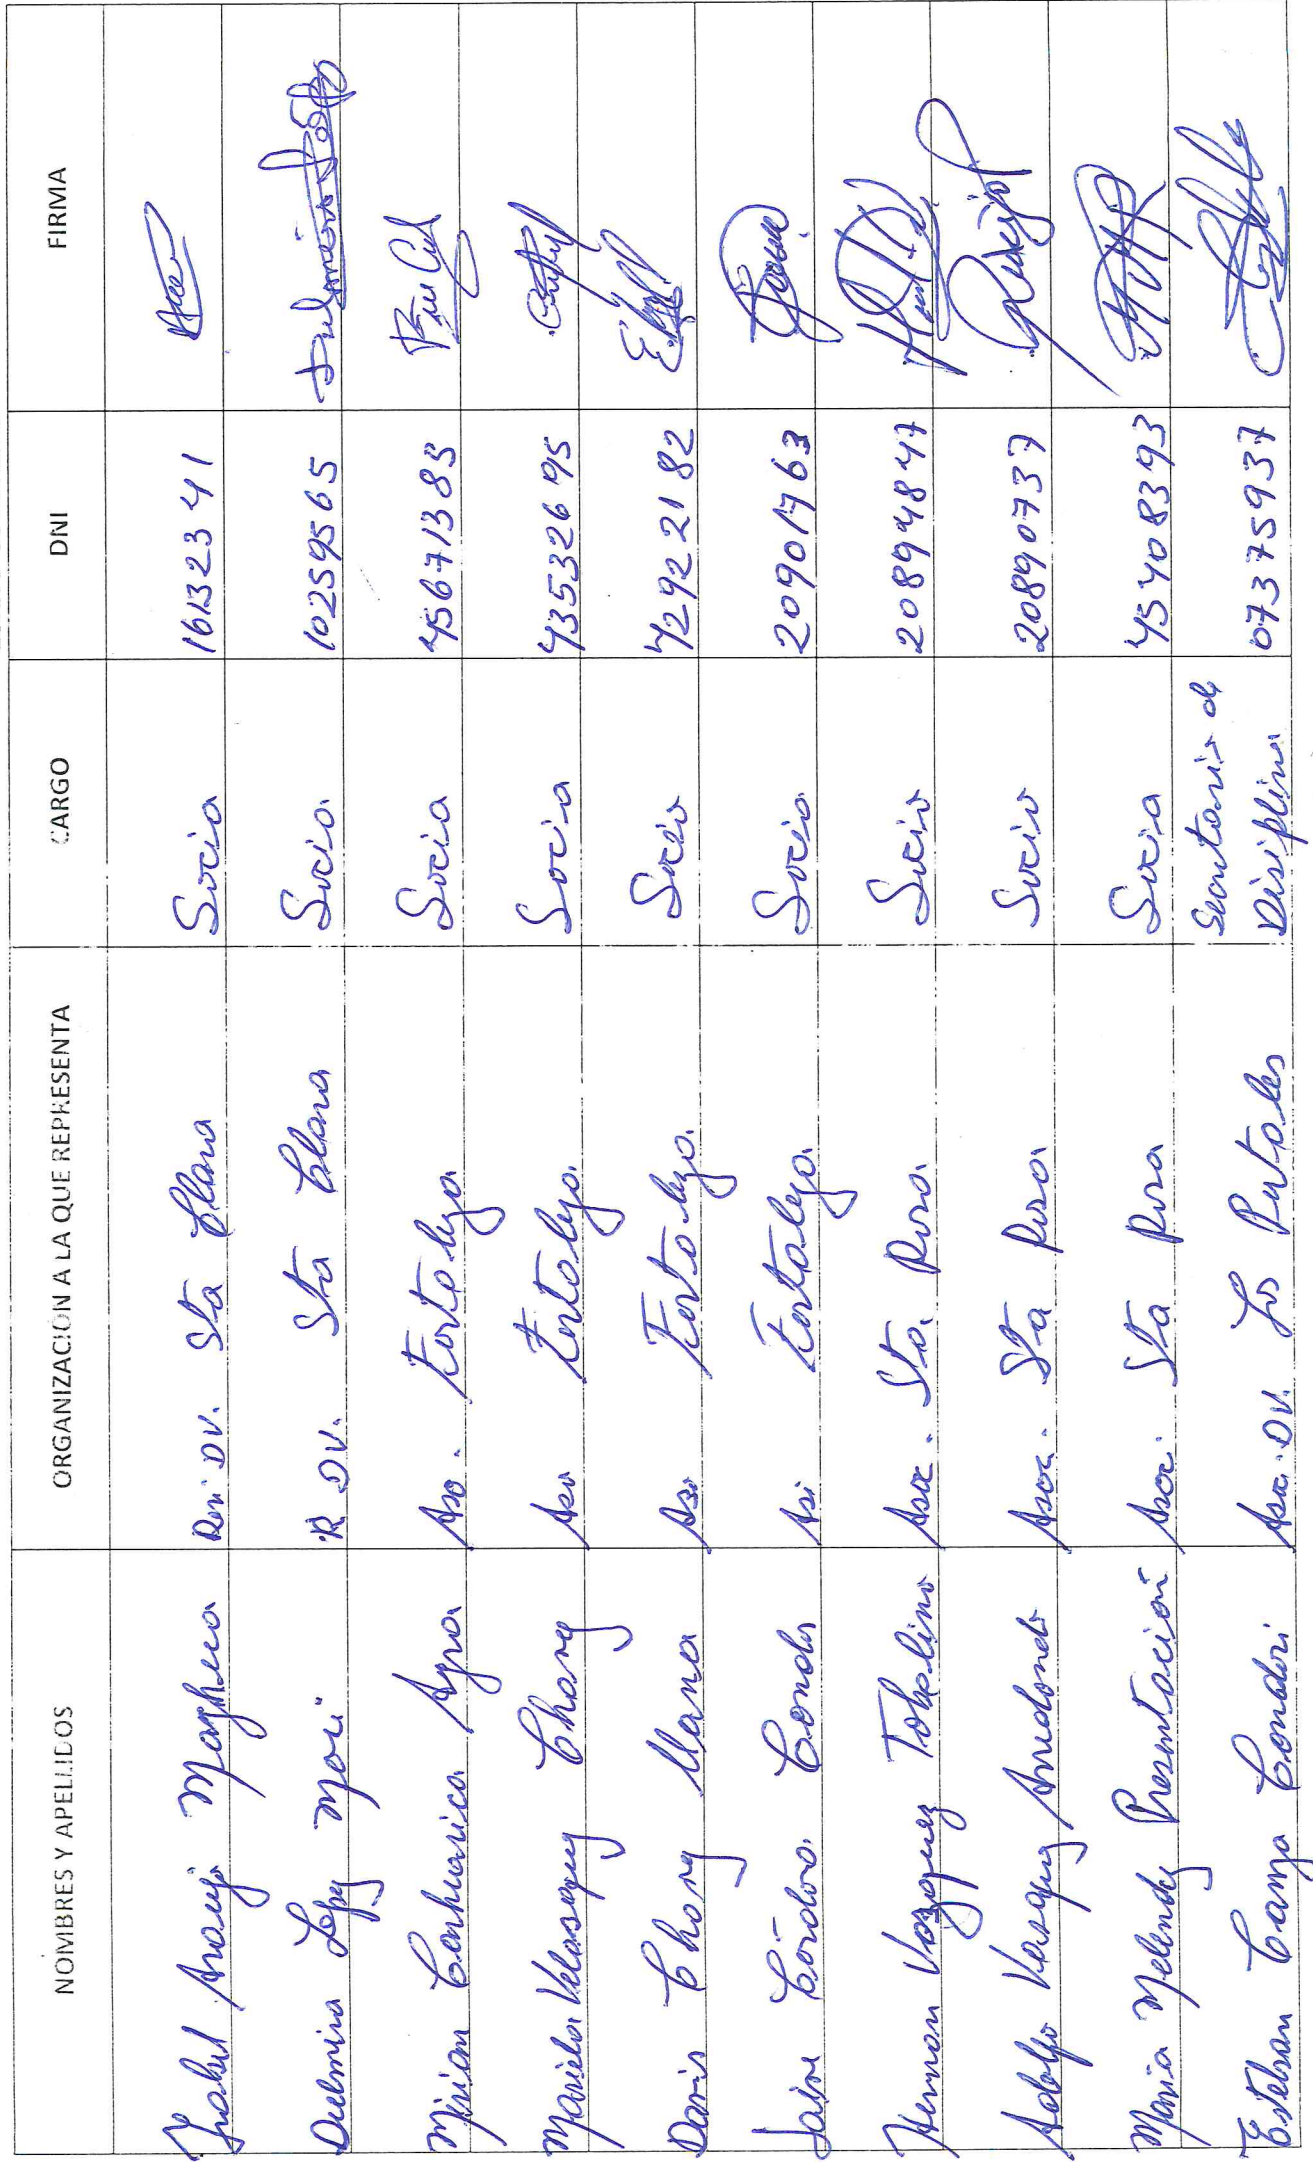 NOMBRES Y APELLIDOS ORGANIZACIÓN A LA QUE REPRESENTA CARGO DNI FIRMA
Isabel Araujo Maghuca Resi DV. Sta Clara Socia 16132341
Dulmira Lopez Mori R DV. Sta Clara Socia 10259565
Miriam Canhuarica Ayra Aso. Fortaleza Socia 45671385
Mariela Velasquez Chang Aso Fortaleza Socia 43532695
Daris Chang Llana Aso Fortaleza Socio 42922182
Jaime Córdova Conde Aso Fortaleza Socio 20901763
Hernan Vazquez Tobalino Asoc. Sta. Rosa Socio 20894847
Adolfo Vasquez Arredondo Asoc. Sta Rosa Socio 20890737
Maria Melendez Presentación Asoc. Sta Rosa Socia 45408393
Esteban Canga Condori Asoc. DV. Los Portales Secretario de Disiplina 07375937